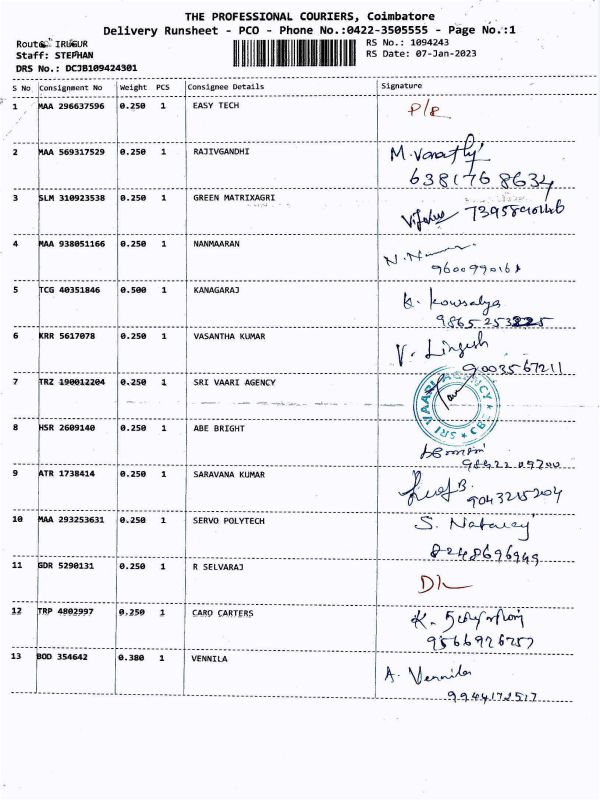 THE PROFESSIONAL COURIERS, Coimbatore
Delivery Runsheet - PCO - Phone No.:0422-3505555 - Page No.:1
Route: IRUGUR
RS No.: 1094243
Staff: STEPHAN
RS Date: 07-Jan-2023
DRS No.: DCJB109424301
S No Consignment No Weight PCS Consignee Details Signature
1 MAA 296637596 0.250 1 EASY TECH
2 MAA 569317529 0.250 1 RAJIVGANDHI
6381768634
3 SLM 310923538 0.250 1 GREEN MATRIXAGRI
4 MAA 938051166 0.250 1 NANMAARAN
5 TCG 40351846 0.500 1 KANAGARAJ K. Kowsalya
6 KRR 5617078 0.250 1 VASANTHA KUMAR V. Lingesh
9003567211
7 TRZ 190012204 0.250 1 SRI VAARI AGENCY
SRI VAARI AGENCY CBE
8 HSR 2609140 0.250 1 ABE BRIGHT
9 ATR 1738414 0.250 1 SARAVANA KUMAR
9043215204
10 MAA 293253631 0.250 1 SERVO POLYTECH
8248696949
11 GDR 5290131 0.250 1 R SELVARAJ
12 TRP 4802997 0.250 1 CARO CARTERS
9566926757
13 BOD 354642 0.380 1 VENNILA A. Vennila
9944172517